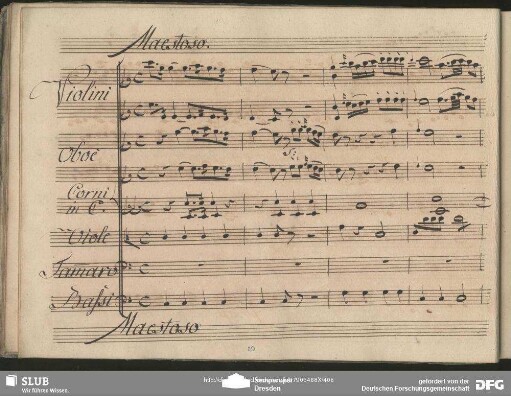 Maestoso.
Violini
Oboe
Corni
in C.
Viole
Tamaro
Bassi
Maestoso
SLUB
Wir führen Wissen.
Dresden
gefördert von der
Deutschen Forschungsgemeinschaft
DFG